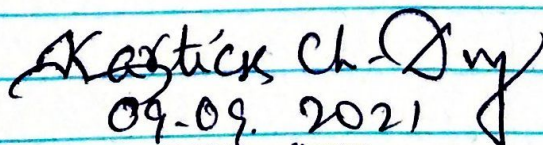 Kartick Ch. Dey
09-09. 2021